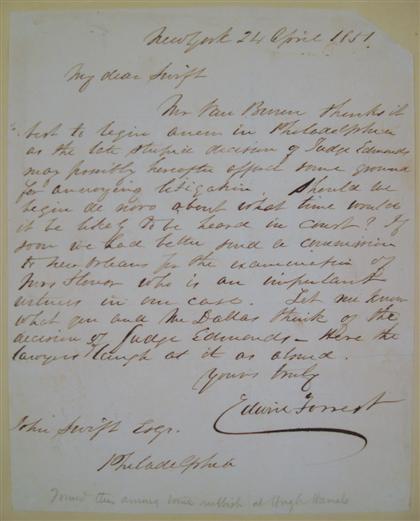 New York 24 April 1851.
My dear Swift
Mr Van Buren thinks it
best to begin anew in Philadelphia
as the late stupid decision of Judge Edmonds
may possibly hereafter afford some ground
for annoying litigation. Should we
begin de novo about what time would
it be likely to be heard in court? If
soon we had better send a commission
to New Orleans for the examination of
Mrs who is an important
witness in our case. Let me know
what you and Mr Dallas think of the
decision of Judge Edmonds - Here the
lawyers laugh at it as absurd.
Yours truly
Edwin Forrest
John Swift Esqr.
Philadelphia
Found this among some rubbish at Hugh